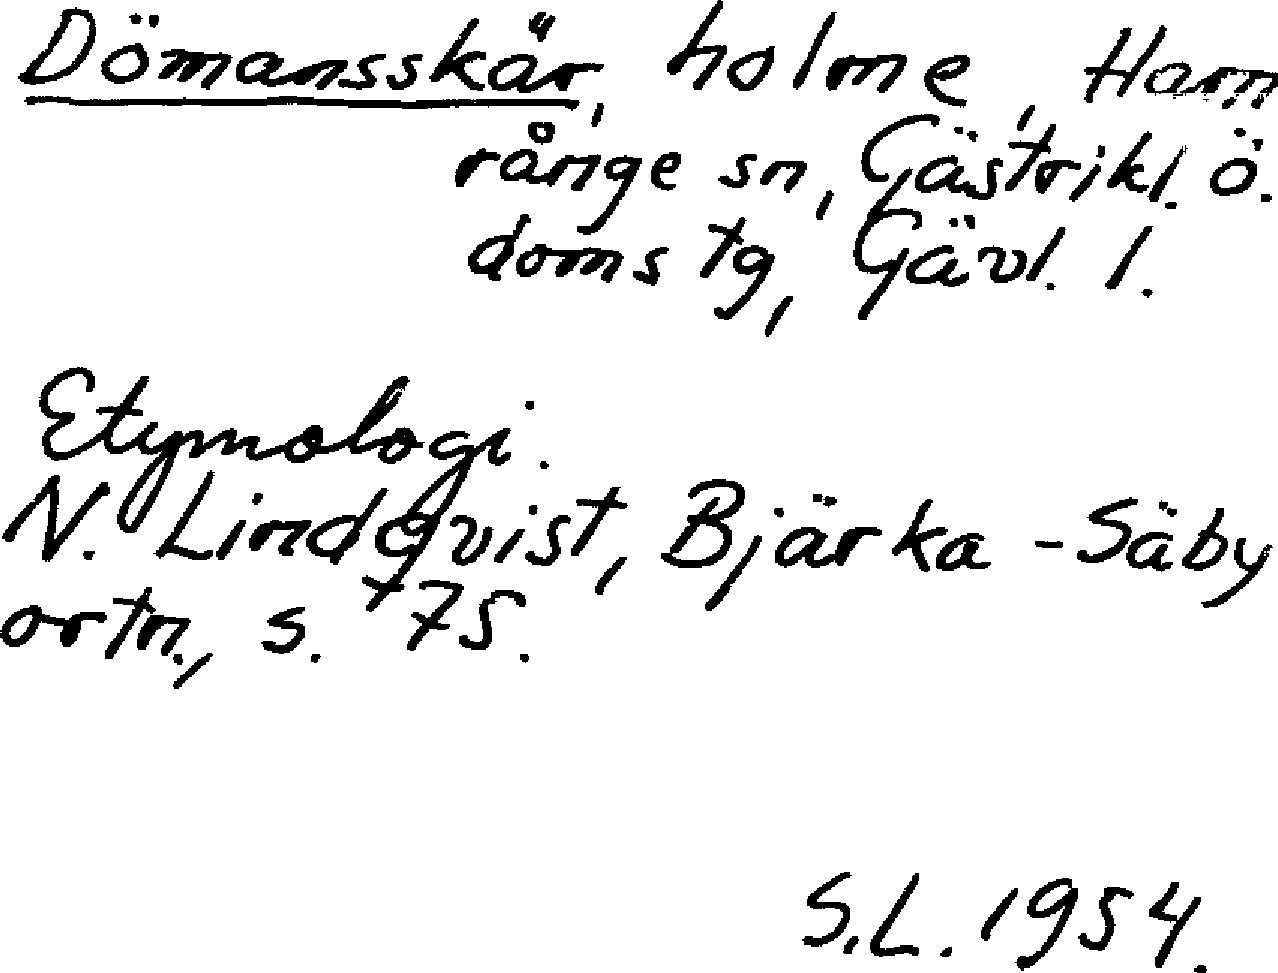 Dömansskär, holme, Ham
rånge sn, Gästrikl. ö.
doms tg, Gävl. l.
Etymologi.
N. Lindqvist, Bjärka-Säby
ortn., s. +75.
S.L. 1954.